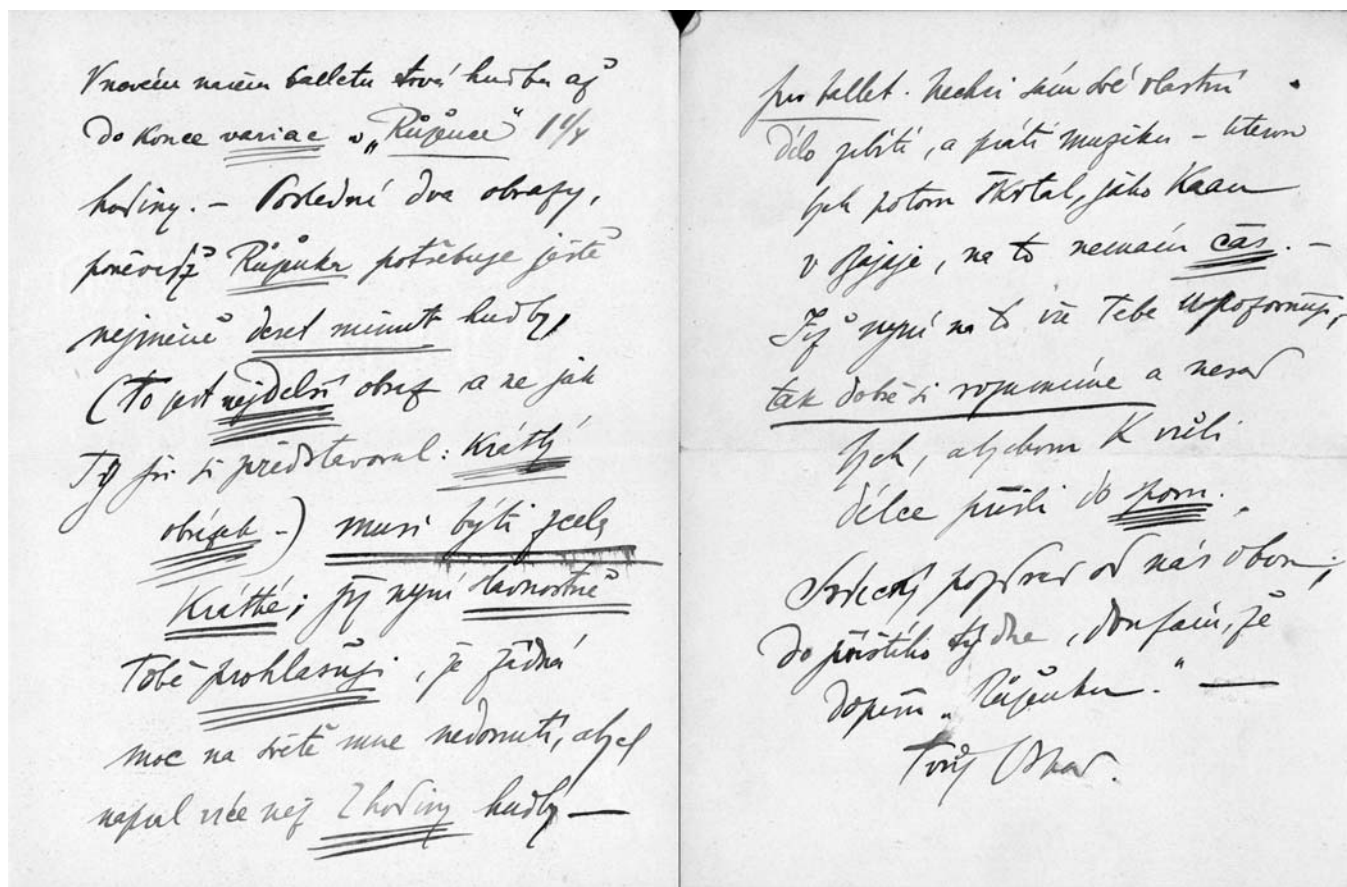 V novém našem balletu trvá hudba až
do konce variac v „Růžence" 1¼
hodiny. – Poslední dva obrazy,
poněvadž Růženka potřebuje ještě
nejméně deset minut hudby,
(to jest nejdelší obraz a ne jak
Ty jsi si představoval: krátký
obrázek –) musí býti zcela
krátké; již nyní slavnostně
Tobě prohlašuji, že žádná
moc na světě mne nedonutí, abych
napsal více než 2 hodiny hudby —
pro ballet. Nechci sám své vlastní
dílo zabíti, a psáti muziku – kterou
bych potom škrtal, jako Kaan
v Bajaje, na to nemám čas. –
Již nyní na to vše Tebe upozorňuji,
tak dobře si rozumíme a nerad
bych, abychom k vůli
délce přišli do sporu.
Srdečný pozdrav od nás obou;
do příštího týdne, doufám, že
dopíši „Růženku." —
Tvůj Oskar.